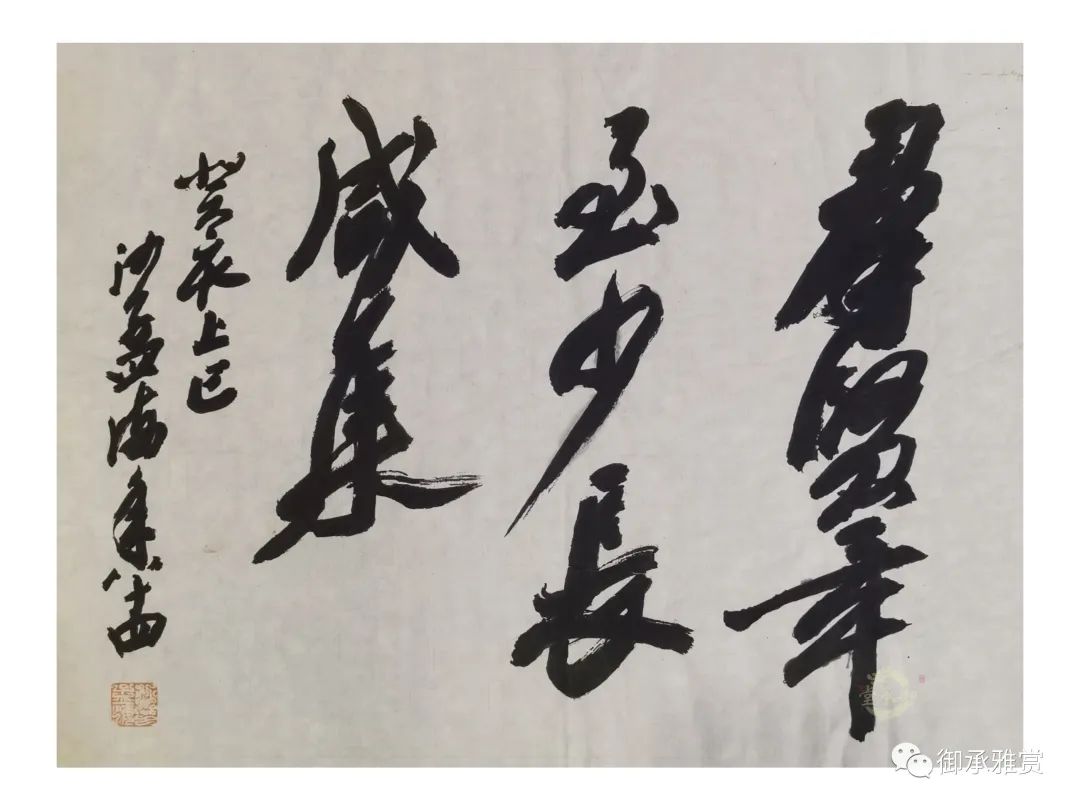 羣賢畢
至少長
咸集
癸亥上巳
沙孟海年八十四
御承雅赏